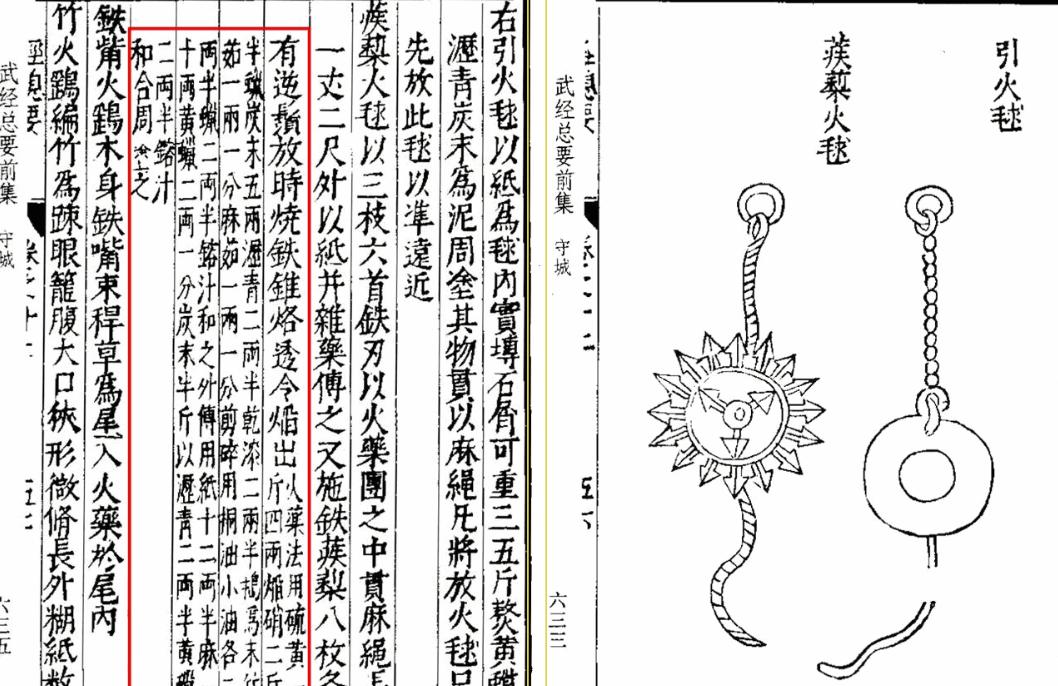 引火毬
蒺蔾火毬
武经总要前集 守城
六三三
右引火毬以紙為毬內實塼石屑可重三五斤熬黃蠟
瀝青炭末為泥周塗其物貫以麻繩凡將放火毬只
先放此毬以準遠近
蒺蔾火毬以三枝六首鉄刃以火藥團之中貫麻繩長
一丈二尺外以紙并雜藥傅之又施鉄蒺蔾八枚各
有逆鬚放時燒鉄錐烙透令焰出
火藥法用硫黃
斤四兩焰硝二斤
半麄炭末五兩瀝青二兩半乾漆二兩半搗為末竹
茹一兩一分麻茹一兩一分剪碎用桐油小油各二
兩半蠟二兩半鎔汁和之外傅用紙十二兩半麻
十兩黃蠟二兩一分炭末半斤以瀝青二兩半黃蠟
二兩半鎔汁
和合周塗之
鉄觜火鷂木身鉄嘴束稈草為尾入火藥於尾內
竹火鷂編竹為疎眼籠腹大口狹形微脩長外糊紙數
武经总要前集 守城
六三五